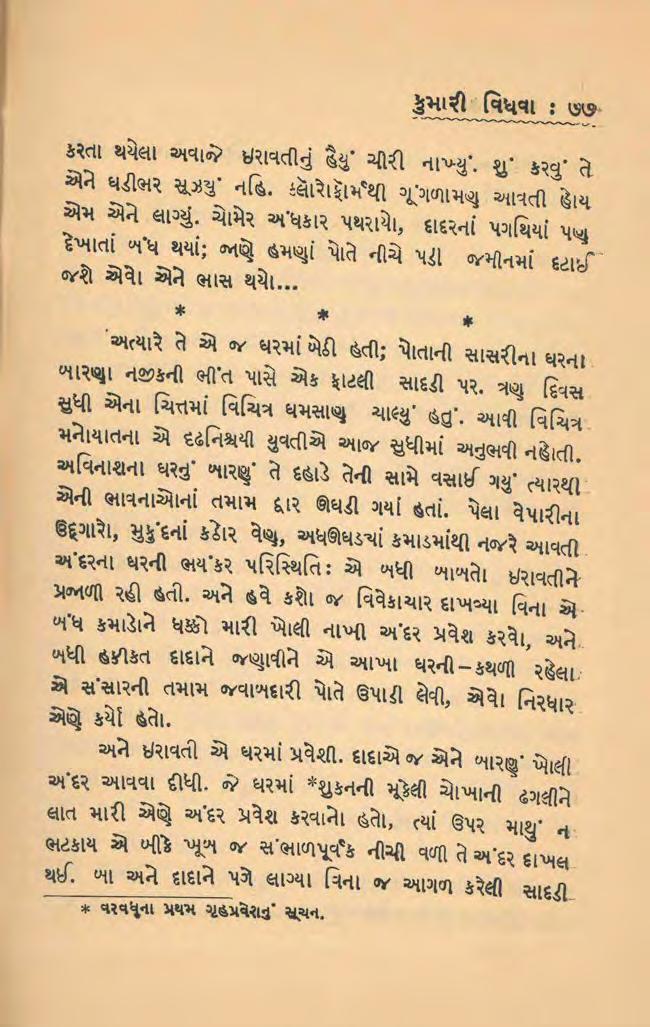 કુમારી વિધવા : ૭૭
કરતા થયેલા અવાજે ઇરાવતીનું હૈયું ચીરી નાખ્યું. શું કરવું તે
એને ઘડીભર સૂઝયું નહિ. ક્લોરોફોર્મથી ગૂંગળામણ આવતી હોય
એમ એને લાગ્યું. ચોમેર અંધકાર પથરાયો, દાદરનાં પગથિયાં પણ
દેખાતાં બંધ થયાં; જાણે હમણાં પોતે નીચે પડી જમીનમાં દટાઈ
જશે એવો એને ભાસ થયો...
* * *
અત્યારે તે એ જ ઘરમાં બેઠી હતી; પોતાની સાસરીના ઘરના
બારણા નજીકની ભીંત પાસે એક ફાટલી સાદડી પર. ત્રણ દિવસ
સુધી એના ચિત્તમાં વિચિત્ર ઘમસાણ ચાલ્યું હતું. આવી વિચિત્ર
મનોયાતના એ દૃઢનિશ્ચયી યુવતીએ આજ સુધીમાં અનુભવી નહોતી.
અવિનાશના ઘરનું બારણું તે દહાડે તેની સામે વસાઈ ગયું ત્યારથી
એની ભાવનાઓનાં તમામ દ્વાર ઊઘડી ગયાં હતાં. પેલા વેપારીના
ઉદ્ગારો, મુકુંદનાં કઠોર વેણ, અધઊઘડ્યાં કમાડમાંથી નજરે આવતી
અંદરના ઘરની ભયંકર પરિસ્થિતિ: એ બધી બાબતો ઇરાવતીને
પ્રજાળી રહી હતી. અને હવે કશો જ વિવેકાચાર દાખવ્યા વિના એ
બંધ કમાડોને ધક્કો મારી ખોલી નાખી અંદર પ્રવેશ કરવો, અને
બધી હકીકત દાદાને જણાવીને એ આખા ઘરની–કથળી રહેલા
એ સંસારની તમામ જવાબદારી પોતે ઉપાડી લેવી, એવો નિરધાર
એણે કર્યો હતો.
અને ઇરાવતી એ ઘરમાં પ્રવેશી. દાદાએ જ એને બારણું ખોલી
અંદર આવવા દીધી. જે ઘરમાં *શુકનની મૂકેલી ચોખાની ઢગલીને
લાત મારી એણે અંદર પ્રવેશ કરવાનો હતો, ત્યાં ઉપર માથું ન
ભટકાય એ બીકે ખૂબ જ સંભાળપૂર્વક નીચી વળી તે અંદર દાખલ
થઈ. બા અને દાદાને પગે લાગ્યા વિના જ આગળ કરેલી સાદડી
* વરવધુના પ્રથમ ગૃહપ્રવેશનું સૂચન.